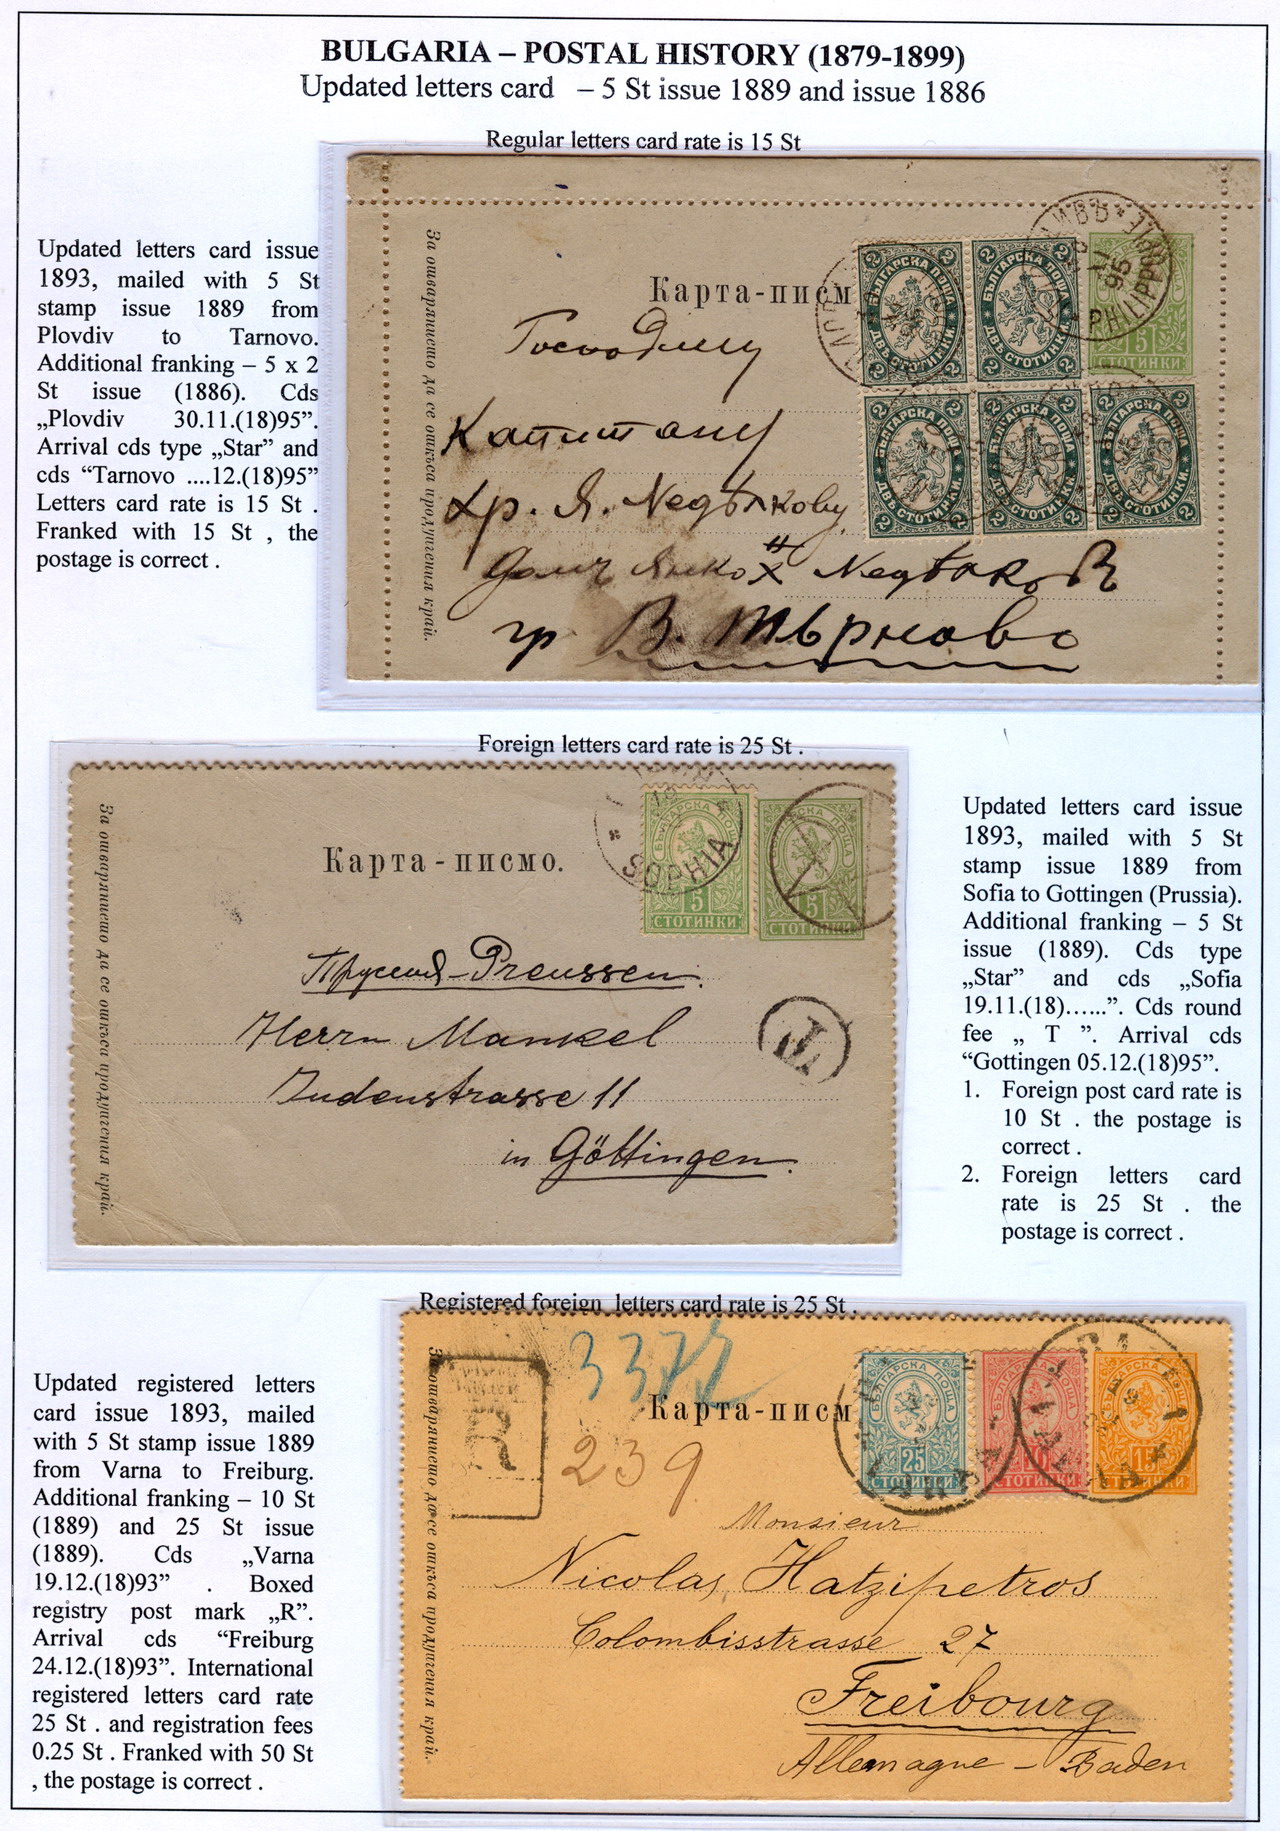 BULGARIA – POSTAL HISTORY (1879-1899)
Updated letters card – 5 St issue 1889 and issue 1886
Regular letters card rate is 15 St
Updated letters card issue
1893, mailed with 5 St
stamp issue 1889 from
Plovdiv to Tarnovo.
Additional franking – 5 x 2
St issue (1886). Cds
„Plovdiv 30.11.(18)95”.
Arrival cds type „Star” and
cds “Tarnovo ....12.(18)95”
Letters card rate is 15 St .
Franked with 15 St , the
postage is correct .
За отваряннето да се откѫса продупчения край.
Карта-писм
БЪЛГАРСКА ПОЩА
ДВѢ СТОТИНКИ.
2
БЪЛГАРСКА ПОЩА
ДВѢ СТОТИНКИ.
2
PHILIPPOP
95
5
СТОТИНКИ
БЪЛГАРСКА ПОЩА
ДВѢ СТОТИНКИ.
2
БЪЛГАРСКА ПОЩА
ДВѢ СТОТИНКИ.
2
БЪЛГАРСКА ПОЩА
ДВѢ СТОТИНКИ.
2
Господину
Капитану
Хр. Я. Недѣлкову
Недѣлковъ
гр. В. Търново
Foreign letters card rate is 25 St .
За отваряннето да се откѫса продупчения край.
Карта-писмо.
SOPHIA
БЪЛГАРСКА ПОЩА
5
СТОТИНКИ
БЪЛГАРСКА ПОЩА
5
СТОТИНКИ
Пруссия-Preussen.
Herrn Mankel
T
Judenstrasse 11
in Göttingen.
Updated letters card issue
1893, mailed with 5 St
stamp issue 1889 from
Sofia to Gottingen (Prussia).
Additional franking – 5 St
issue (1889). Cds type
„Star” and cds „Sofia
19.11.(18)…...”. Cds round
fee „ T ”. Arrival cds
“Gottingen 05.12.(18)95”.
1. Foreign post card rate is
10 St . the postage is
correct .
2. Foreign letters card
rate is 25 St . the
postage is correct .
Registered foreign letters card rate is 25 St .
Updated registered letters
card issue 1893, mailed
with 5 St stamp issue 1889
from Varna to Freiburg.
Additional franking – 10 St
(1889) and 25 St issue
(1889). Cds „Varna
19.12.(18)93” . Boxed
registry post mark „R”.
Arrival cds “Freiburg
24.12.(18)93”. International
registered letters card rate
25 St . and registration fees
0.25 St . Franked with 50 St
, the postage is correct .
За отваряннето да се откѫса продупчения край.
R
3372
Карта-писм
239
БЪЛГАРСКА ПОЩА
25
СТОТИНКИ
10
СТОТИНКИ
15
Monsieur
Nicolas Hatzipetros
Colombisstrasse 27
Freibourg
Allemagne – Baden